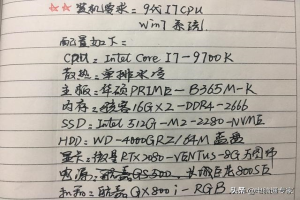 ※※ 装机要求：9代I7CPU
Win7系统
配置如下：
CPU = Intel Core I7-9700K
散热 = 单排水冷
主板 = 华硕PRIME-B365M-K
内存 = 骇客16GX2-DDR4-2666
SSD = Intel 512G-M2-2280-NVME
HDD = WD-4000GRZ/64M 蓝盘
显卡 = 微星RTX2080-VENTUS-8G万图师
电源 = 航嘉GS800
机箱 = 航嘉GX800i-RGB
头条 @电脑源专家